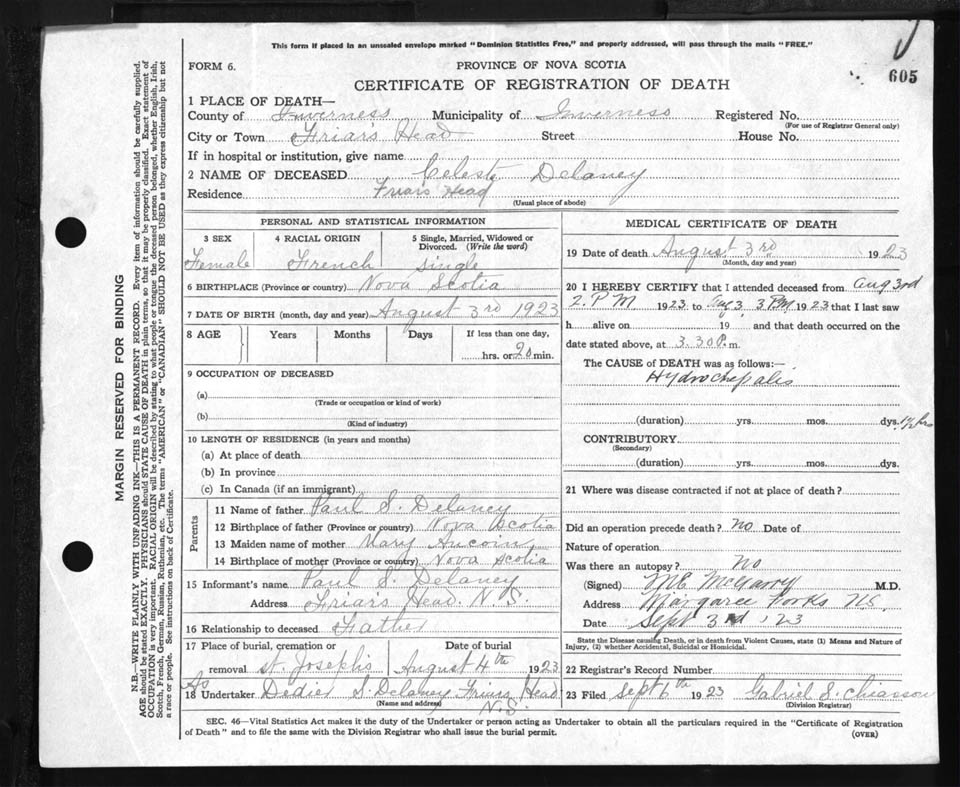 This form if placed in an unsealed envelope marked "Dominion Statistics Free," and properly addressed, will pass through the mails "FREE."
FORM 6.
PROVINCE OF NOVA SCOTIA
605
CERTIFICATE OF REGISTRATION OF DEATH
1 PLACE OF DEATH—
County of Inverness Municipality of Inverness Registered No.
(For use of Registrar General only)
City or Town Friars Head Street House No.
If in hospital or institution, give name
2 NAME OF DECEASED Celeste Delaney
Residence Friars Head
(Usual place of abode)
PERSONAL AND STATISTICAL INFORMATION
3 SEX 4 RACIAL ORIGIN 5 Single, Married, Widowed or Divorced. (Write the word)
Female French Single
6 BIRTHPLACE (Province or country) Nova Scotia
7 DATE OF BIRTH (month, day and year) August 3rd 1923
8 AGE Years Months Days If less than one day,
hrs. or 20 min.
9 OCCUPATION OF DECEASED
(a)
(Trade or occupation or kind of work)
(b)
(Kind of industry)
10 LENGTH OF RESIDENCE (in years and months)
(a) At place of death
(b) In province
(c) In Canada (if an immigrant)
Parents
11 Name of father Paul S. Delaney
12 Birthplace of father (Province or country) Nova Scotia
13 Maiden name of mother Mary Aucoin
14 Birthplace of mother (Province or country) Nova Scotia
15 Informant's name Paul S. Delaney
Address Friars Head. N.S.
16 Relationship to deceased Father
17 Place of burial, cremation or Date of burial
removal St. Joseph's August 4th 1923
As
18 Undertaker Dedier S. Delaney Friars Head
(Name and address) N.S.
MEDICAL CERTIFICATE OF DEATH
19 Date of death August 3rd 1923
(Month, day and year)
20 I HEREBY CERTIFY that I attended deceased from Aug 3rd
2. P.M. 1923 to Aug 3, 3 PM 1923 that I last saw
h alive on 19 and that death occurred on
date stated above, at 3.30 P.m.
The CAUSE OF DEATH was as follows:—
Hydrochepalis
(duration) yrs. mos. dys. 1½ hrs
CONTRIBUTORY
(Secondary)
(duration) yrs. mos. dys.
21 Where was disease contracted if not at place of death?
Did an operation precede death? no Date of
Nature of operation
Was there an autopsy? No
(Signed) M.E. McGarry M.D.
Address Margaree Forks N.S.
Date Sept 3rd 1923
State the Disease causing Death, or in death from Violent Causes, state (1) Means and Nature of
Injury, (2) whether Accidental, Suicidal or Homicidal.
22 Registrar's Record Number
23 Filed Sept 6th 1923 Gabriel S. Chiasson
(Division Registrar)
SEC. 46—Vital Statistics Act makes it the duty of the Undertaker or person acting as Undertaker to obtain all the particulars required in the "Certificate of Registration
of Death" and to file the same with the Division Registrar who shall issue the burial permit.
(OVER)
MARGIN RESERVED FOR BINDING
N.B.—WRITE PLAINLY WITH UNFADING INK—THIS IS A PERMANENT RECORD. Every item of information should be carefully supplied.
AGE should be stated EXACTLY. PHYSICIANS should STATE CAUSE OF DEATH in plain terms, so that it may be properly classified. Exact statement of
OCCUPATION is very important. RACIAL ORIGIN will be described by stating to what people or tongue the deceased person belonged, whether English, Irish,
Scotch, French, German, Russian, Ruthenian, etc. The terms "AMERICAN" or "CANADIAN" SHOULD NOT BE USED as they express citizenship but not
a race or people. See instructions on back of Certificate.